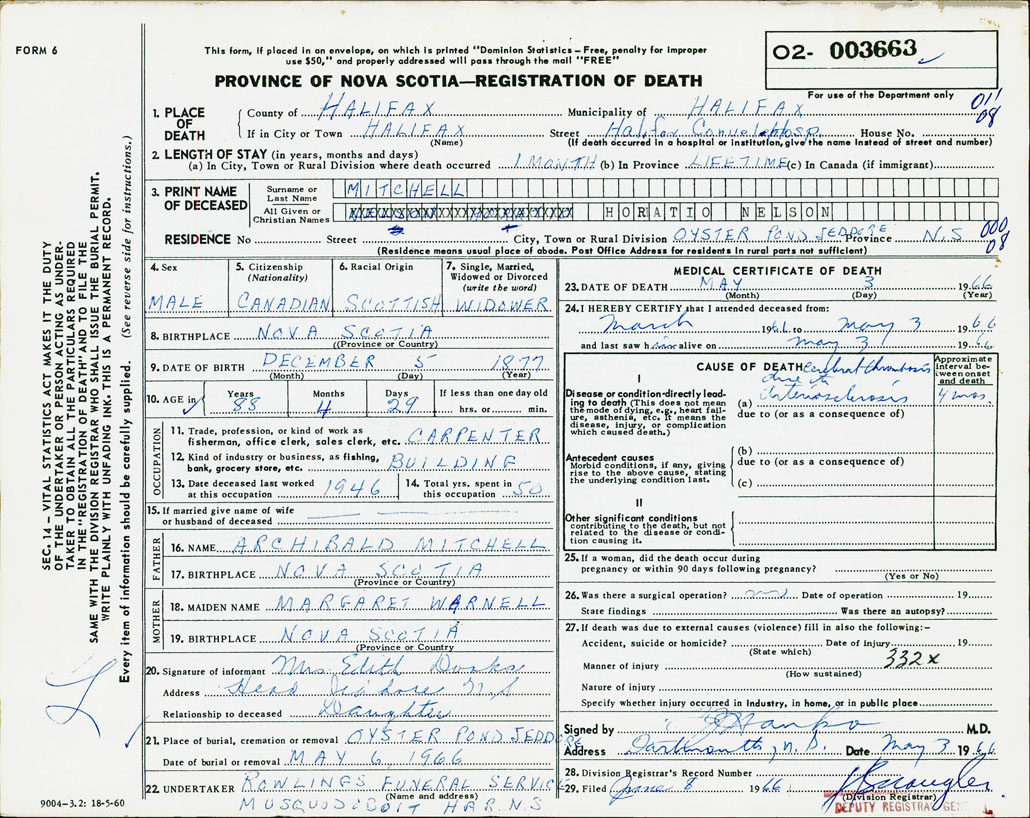 FORM 6
This form, if placed in an envelope, on which is printed "Dominion Statistics—Free, penalty for improper
use $50," and properly addressed will pass through the mail "FREE"
PROVINCE OF NOVA SCOTIA—REGISTRATION OF DEATH
O2- 003663
For use of the Department only
011
08
1. PLACE OF DEATH
County of HALIFAX Municipality of HALIFAX
If in City or Town HALIFAX Street Halifax Hosp. House No.
(Name) (If death occurred in a hospital or institution, give the name instead of street and number)
2. LENGTH OF STAY (in years, months and days)
(a) In City, Town or Rural Division where death occurred 1 MONTH (b) In Province LIFETIME (c) In Canada (if immigrant)
3. PRINT NAME OF DECEASED
Surname or Last Name MITCHELL
All Given or Christian Names HORATIO NELSON
000
08
RESIDENCE No Street City, Town or Rural Division OYSTER POND JEDDORE Province N.S
(Residence means usual place of abode. Post Office Address for residents in rural parts not sufficient)
4. Sex MALE
5. Citizenship (Nationality) CANADIAN
6. Racial Origin SCOTTISH
7. Single, Married, Widowed or Divorced (write the word) WIDOWER
8. BIRTHPLACE NOVA SCOTIA
((Province or Country)
9. DATE OF BIRTH DECEMBER 5 1877
(Month) (Day) (Year)
10. AGE in Years 88 Months 4 Days 29 If less than one day old hrs. or min.
OCCUPATION
11. Trade, profession, or kind of work as
fisherman, office clerk, sales clerk, etc. CARPENTER
12. Kind of industry or business, as fishing,
bank, grocery store, etc. BUILDING
13. Date deceased last worked at this occupation 1946
14. Total yrs. spent in this occupation 50
15. If married give name of wife
or husband of deceased
FATHER
16. NAME ARCHIBALD MITCHELL
17. BIRTHPLACE NOVA SCOTIA
(Province or Country)
MOTHER
18. MAIDEN NAME MARGARET WARNELL
19. BIRTHPLACE NOVA SCOTIA
(Province or Country
20. Signature of informant Mrs Edith
Address Head Jeddore N.S
Relationship to deceased Daughter
21. Place of burial, cremation or removal OYSTER POND JEDDORE
Date of burial or removal MAY 6, 1966
22. UNDERTAKER ROWLINGS FUNERAL SERVICE
(Name and address)
MUSQUODOBOIT HAR. N.S
MEDICAL CERTIFICATE OF DEATH
23. DATE OF DEATH MAY 3 1966
(Month) (Day) (Year)
24. I HEREBY CERTIFY that I attended deceased from:
March 1966 to May 3 1966
and last saw him alive on May 3 1966
CAUSE OF DEATH
Approximate interval between onset and death
I
Cerebral thrombosis
due to
Disease or condition directly leading to death (This does not mean the mode of dying, e.g., heart failure, asthenia, etc. It means the disease, injury, or complication which caused death.)
(a) Arteriosclerosis 4 mos.
due to (or as a consequence of)
Antecedent causes
Morbid conditions, if any, giving rise to the above cause, stating the underlying condition last.
(b)
due to (or as a consequence of)
(c)
II
Other significant conditions
contributing to the death, but not related to the disease or condition causing it.
25. If a woman, did the death occur during
pregnancy or within 90 days following pregnancy?
(Yes or No)
26. Was there a surgical operation? no Date of operation 19
State findings Was there an autopsy?
27. If death was due to external causes (violence) fill in also the following:—
Accident, suicide or homicide? Date of injury 19
(State which)
332x
Manner of injury
(How sustained)
Nature of injury
Specify whether injury occurred in Industry, in home, or in public place
Signed by M.D.
Address Dartmouth, N.S. Date May 3 1966
28. Division Registrar's Record Number
29. Filed June 8 1966
(Division Registrar)
DEPUTY REGISTRAR GENERAL
SEC. 14 – VITAL STATISTICS ACT MAKES IT THE DUTY
OF THE UNDERTAKER OR PERSON ACTING AS UNDER-
TAKER TO OBTAIN ALL THE PARTICULARS REQUIRED
IN THE "REGISTRATION OF DEATH" AND TO FILE THE
SAME WITH THE DIVISION REGISTRAR WHO SHALL ISSUE THE BURIAL PERMIT.
WRITE PLAINLY WITH UNFADING INK. THIS IS A PERMANENT RECORD.
Every item of information should be carefully supplied. (See reverse side for instructions.)
9004-3.2: 18-5-60